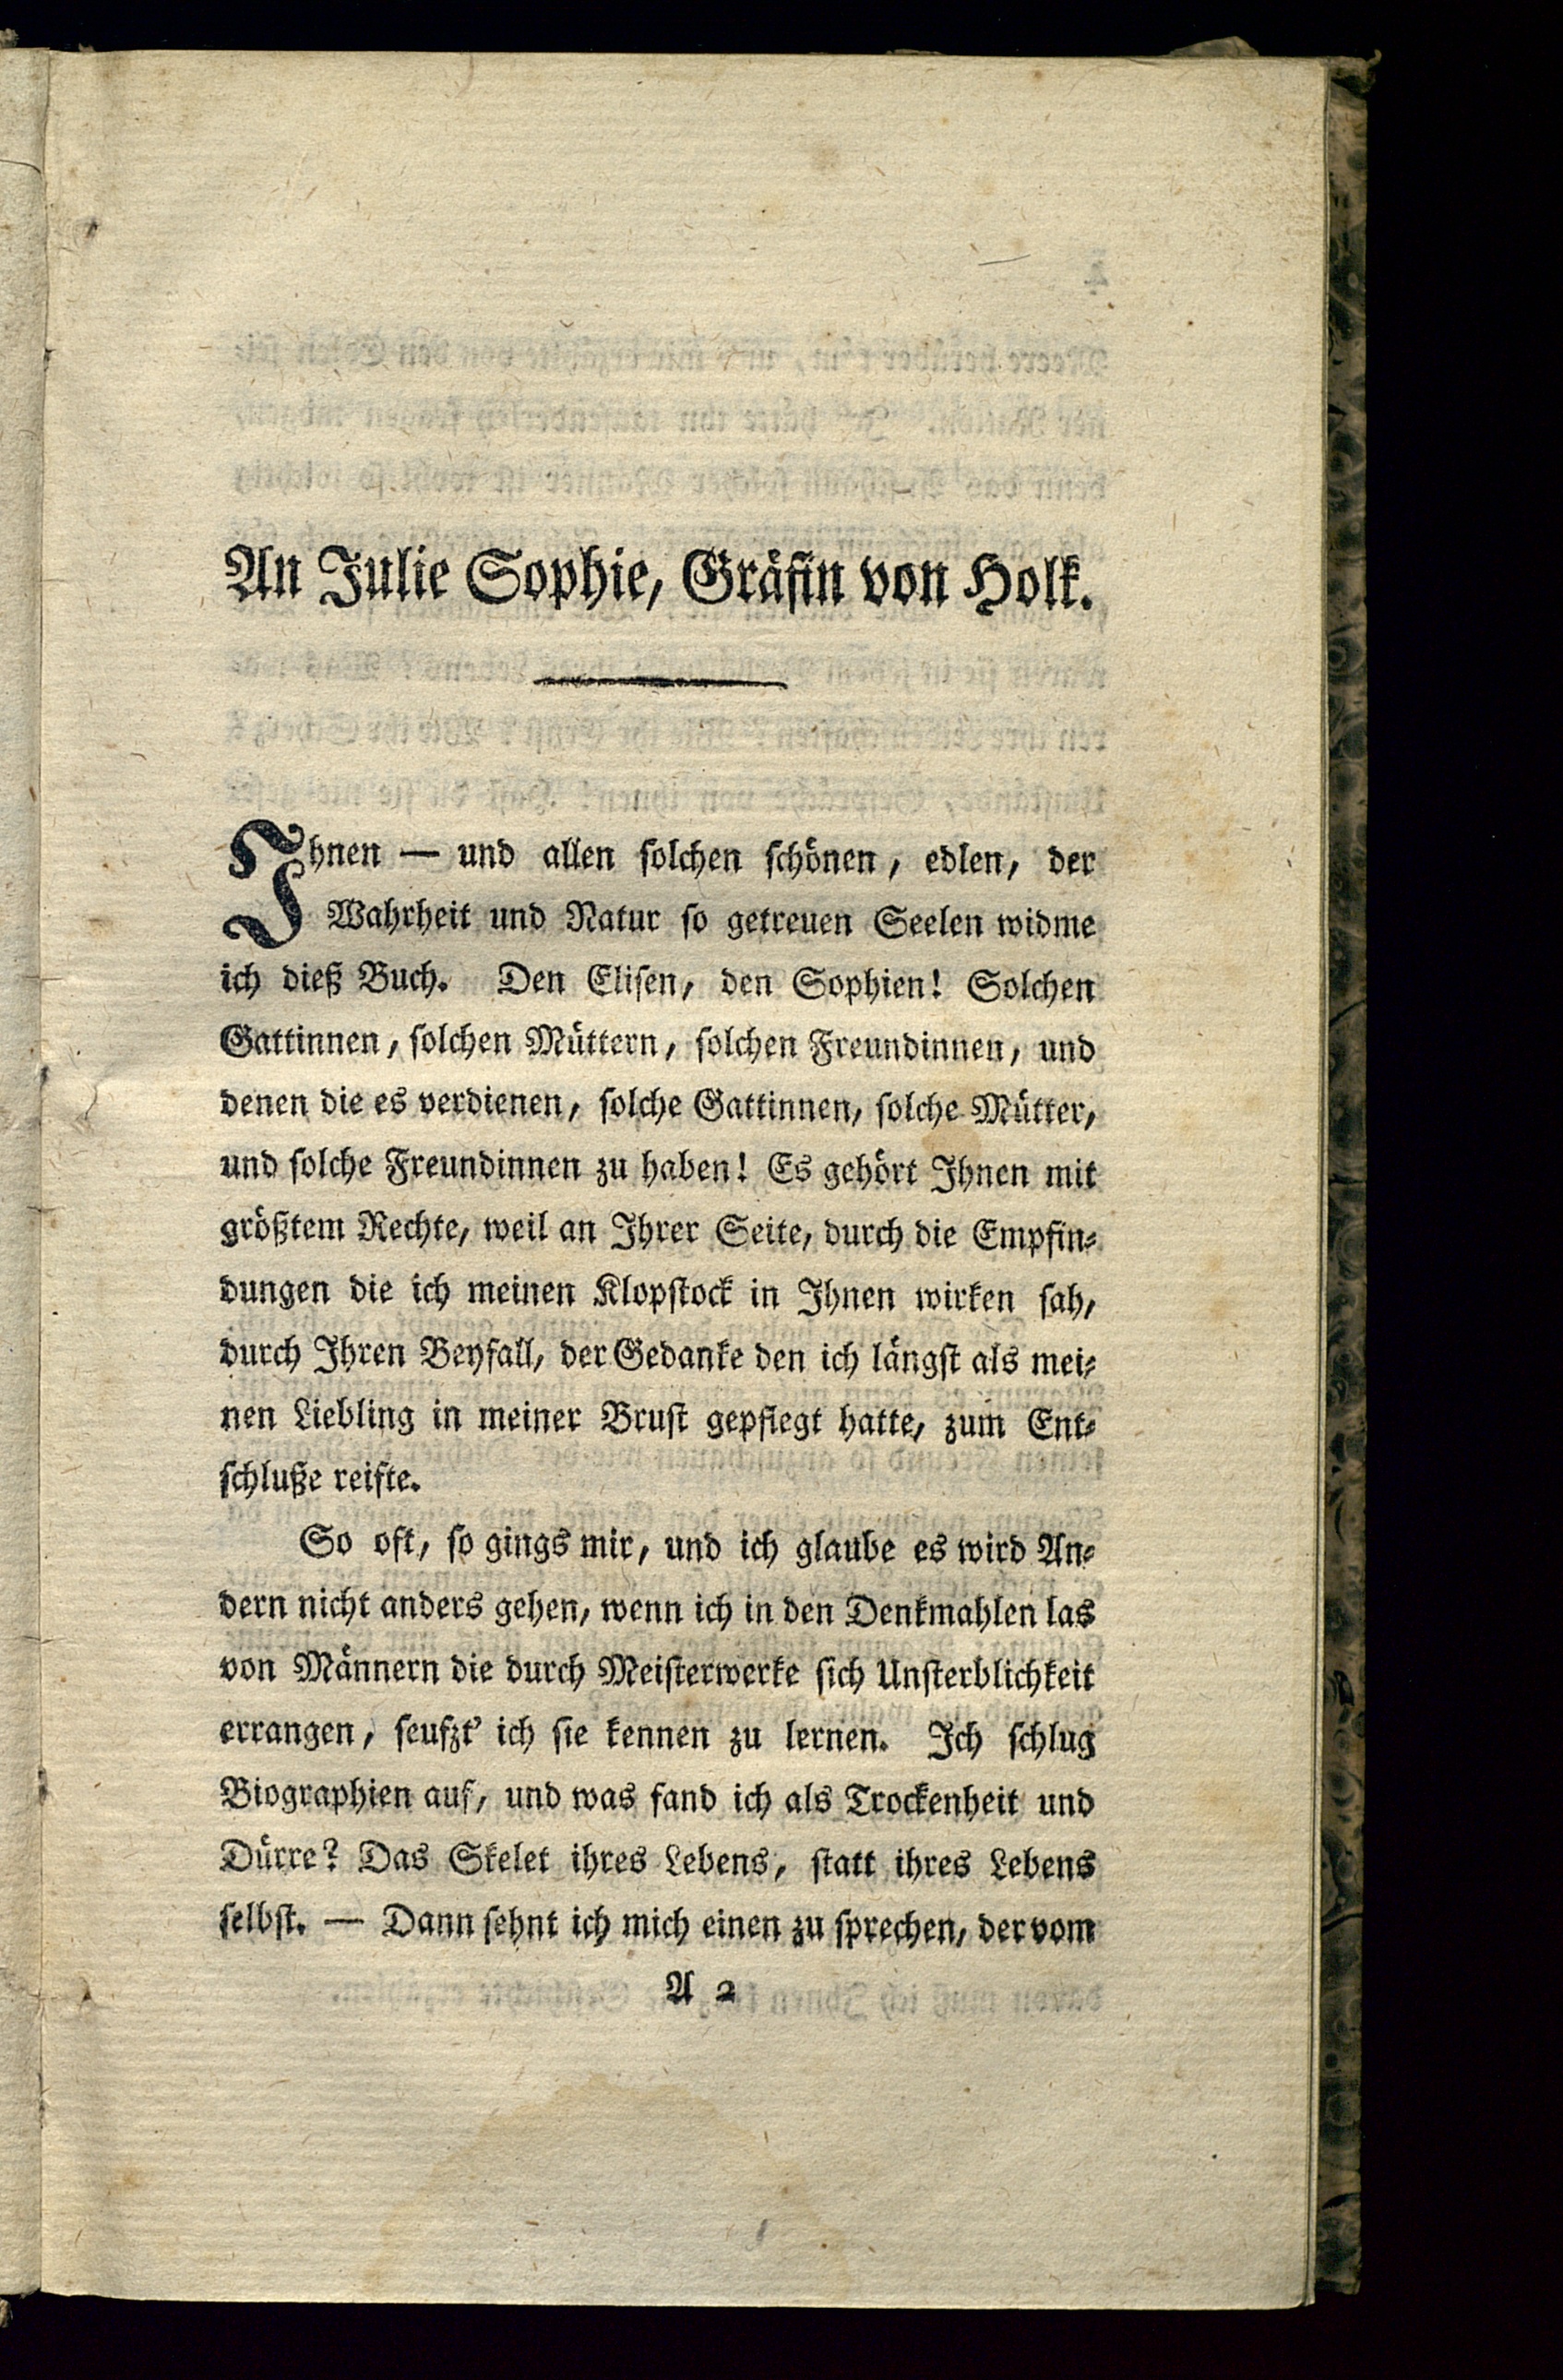 An Julie Sophie, Gräfin von Holk.
Ihnen — und allen solchen schönen, edlen, der
Wahrheit und Natur so getreuen Seelen widme
ich dieß Buch. Den Elisen, den Sophien! Solchen
Gattinnen, solchen Müttern, solchen Freundinnen, und
denen die es verdienen, solche Gattinnen, solche Mütter,
und solche Freundinnen zu haben! Es gehört Ihnen mit
größtem Rechte, weil an Ihrer Seite, durch die Empfin-
dungen die ich meinen Klopstock in Ihnen wirken sah,
durch Ihren Beyfall, der Gedanke den ich längst als mei-
nen Liebling in meiner Brust gepflegt hatte, zum Ent-
schluße reifte.
So oft, so gings mir, und ich glaube es wird An-
dern nicht anders gehen, wenn ich in den Denkmahlen las
von Männern die durch Meisterwerke sich Unsterblichkeit
errangen, seufzt' ich sie kennen zu lernen. Ich schlug
Biographien auf, und was fand ich als Trockenheit und
Dürre? Das Skelet ihres Lebens, statt ihres Lebens
selbst. — Dann sehnt ich mich einen zu sprechen, der vom
A 2